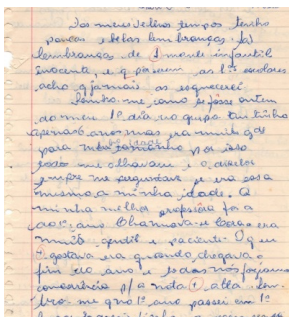 Dos meus velhos tempos tenho
poucas e belas lembranças. São
lembranças de 1 mente infantil
inocente, e q. parecem as 1ªs escolares
acho q jamais as esquecerei.
Lembro-me, como se fosse ontem
do meu 1º dia no grupo tão tinha
apenas 6 anos mas era muito gde
para meu tamanho por isso
todos me olhavam e o diretor
sempre me perguntava se era essa
mesmo a minha idade. A
minha melhor professora foi a
do 1º ano. Chamava-se era
muito gentil e paciente. O q eu
+ gostava era quando chegava o
fim do ano e todas nós fazíamos
concorrência p/ a nota + alta. Lem-
bro-me q no 1º ano passei em 1º